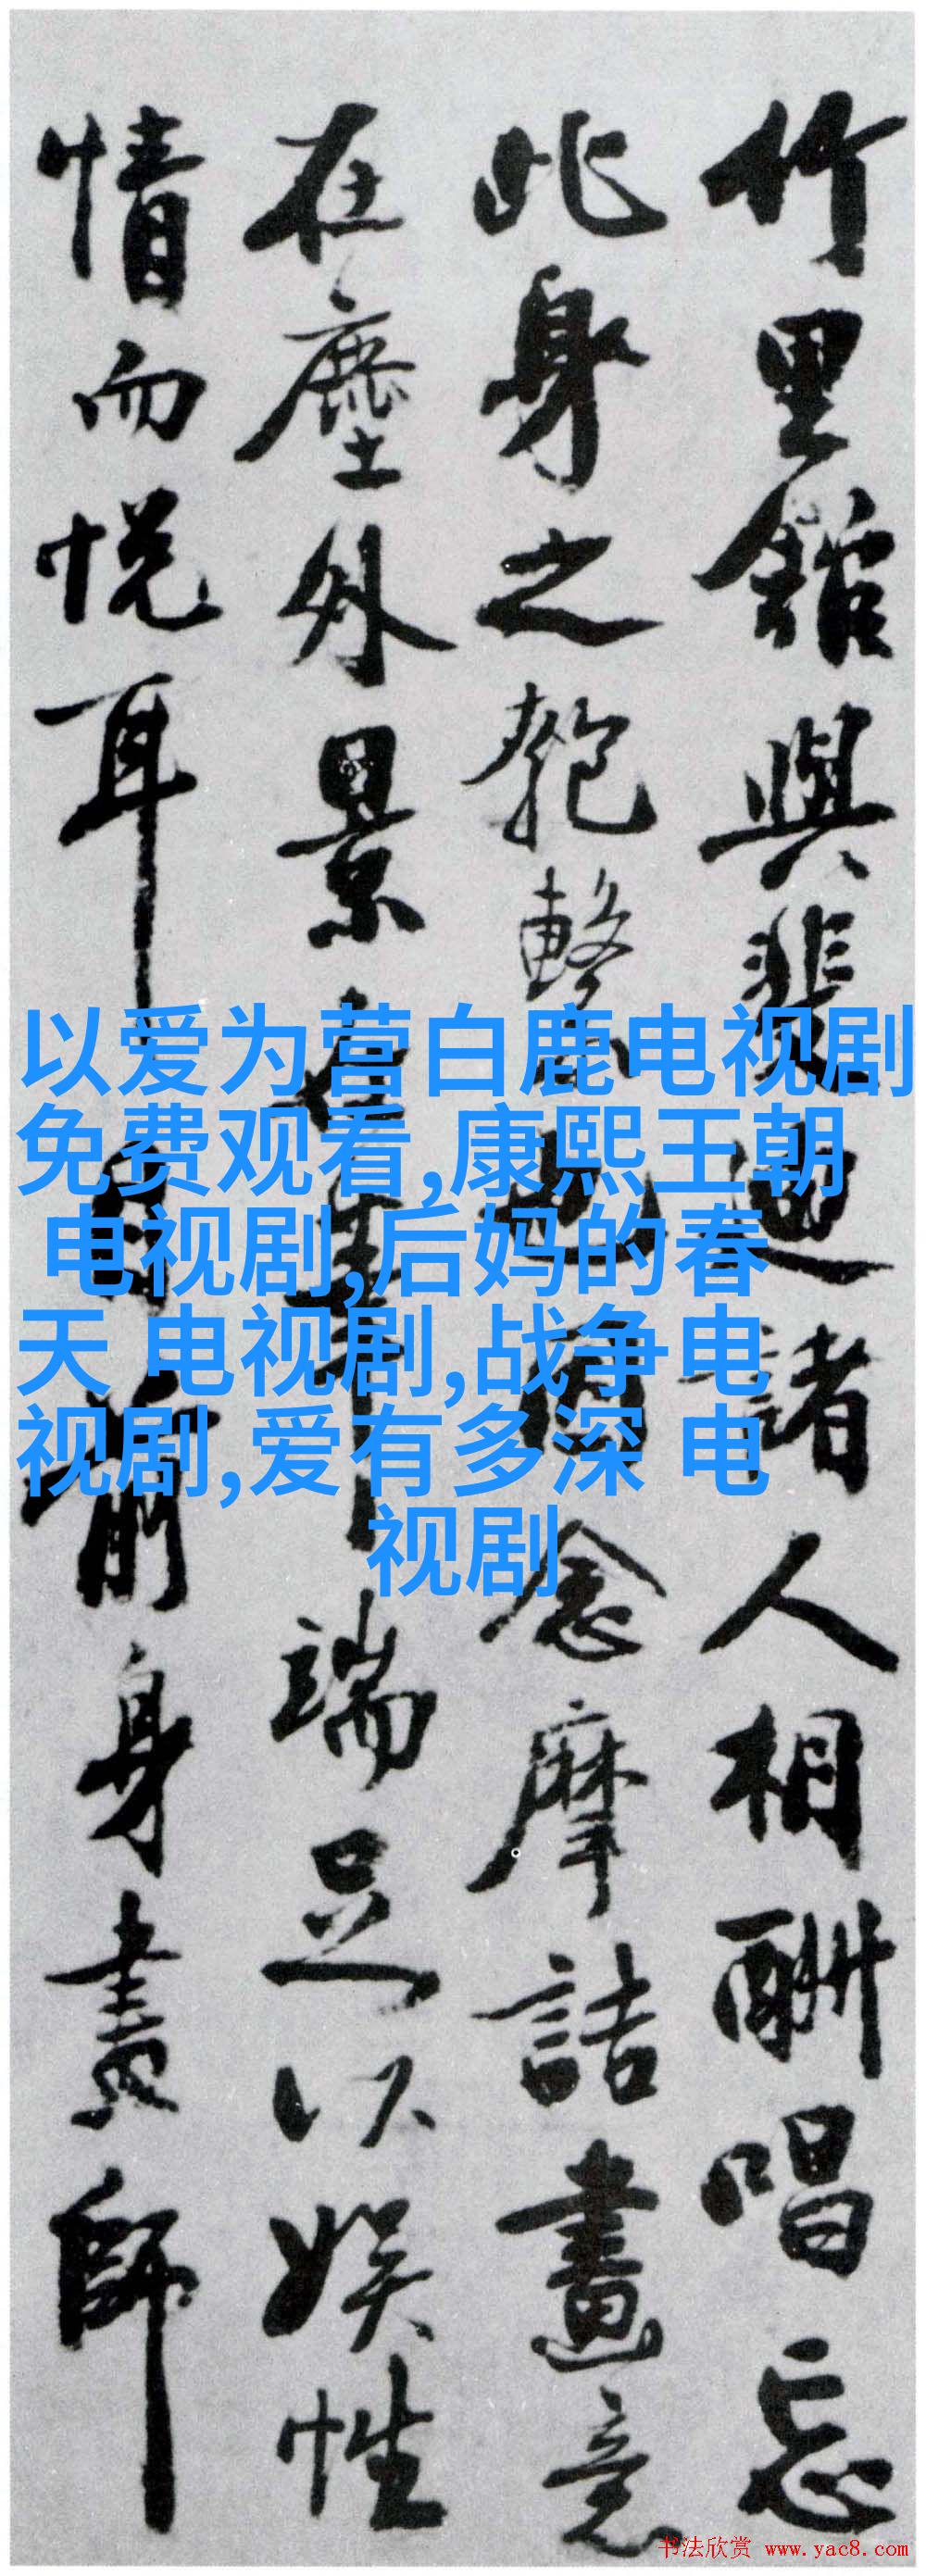 竹里館與裴迪諸人相酬唱忘
此身之匏繫也因念摩詰畫意
在塵外景在筆端足以娛性
情而悅耳目前身畫師
以爱为营白鹿电视剧
免费观看,康熙王朝
电视剧,后妈的春
天 电视剧,战争电
视剧,爱有多深 电
视剧
书法欣赏 www.yac8.com